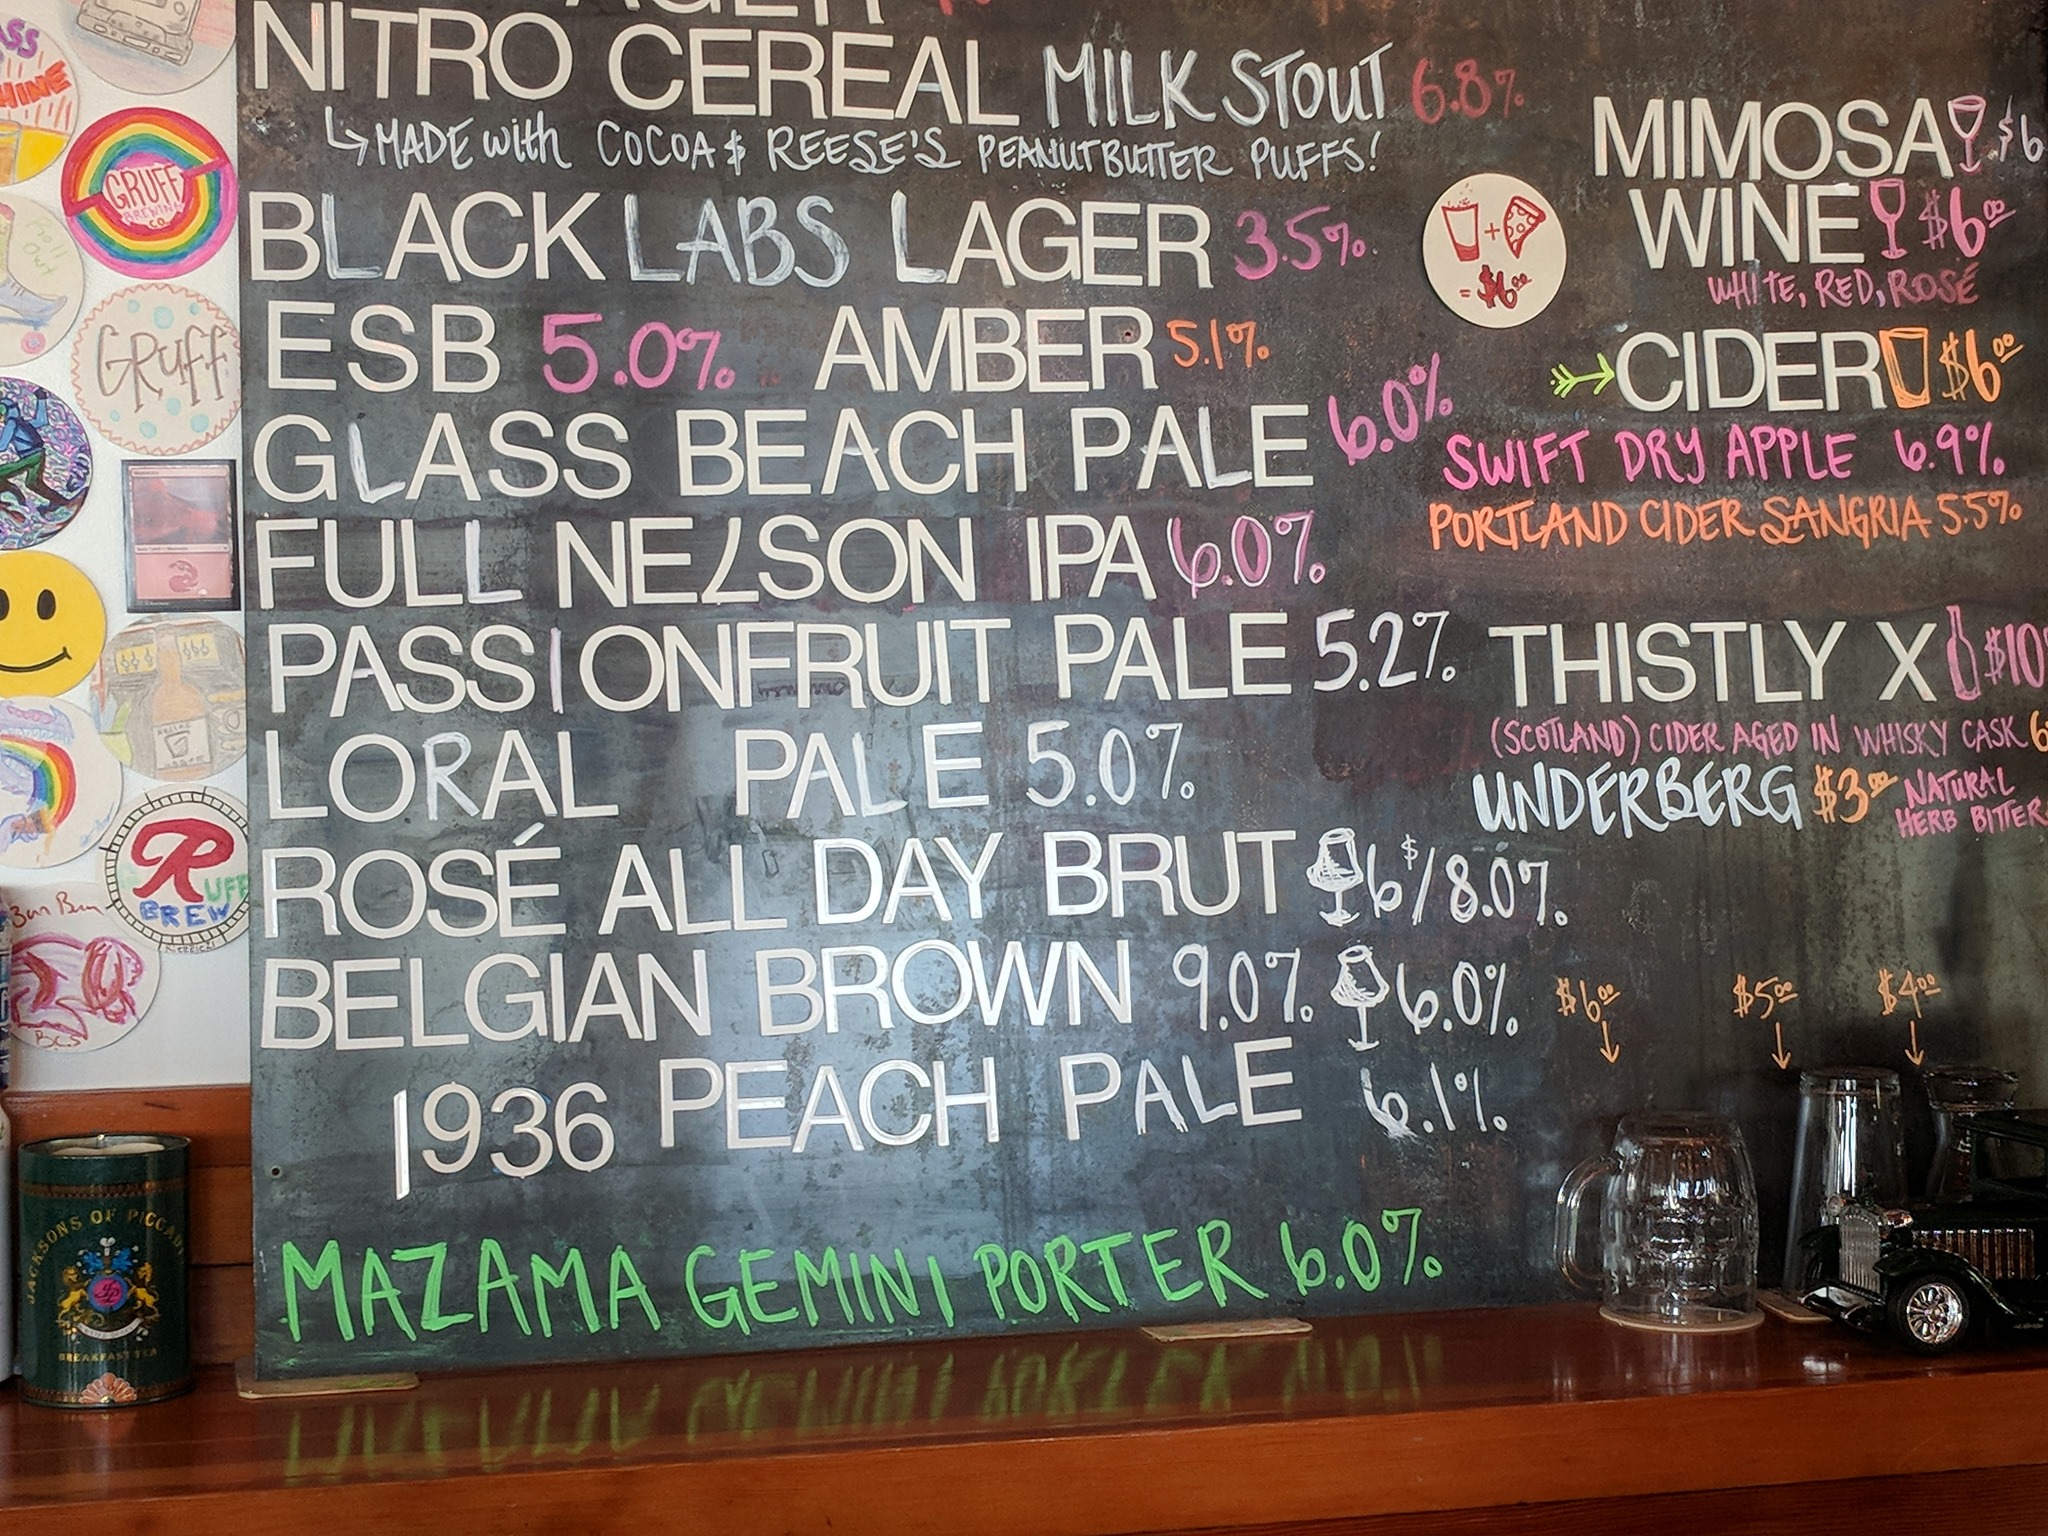 NITRO CEREAL MILK STOUT 6.8%
↳ MADE with COCOA & REESE'S PEANUT BUTTER PUFFS!
BLACK LABS LAGER 3.5%
ESB 5.0% AMBER 5.1%
GLASS BEACH PALE 6.0%
FULL NELSON IPA 6.0%
PASSIONFRUIT PALE 5.2%
LORAL PALE 5.0%
ROSÉ ALL DAY BRUT 6$/8.0%
BELGIAN BROWN 9.0% 6.0%
1936 PEACH PALE 6.1%
MAZAMA GEMINI PORTER 6.0%
+
= $6.00
MIMOSA $6
WINE $6.00
WHITE, RED, ROSÉ
CIDER $6.00
SWIFT DRY APPLE 6.9%
PORTLAND CIDER SANGRIA 5.5%
THISTLY X $10
(SCOTLAND) CIDER AGED IN WHISKY CASK
UNDERBERG $3.00 NATURAL
HERB BITTERS
$6.00 $5.00 $4.00
GRUFF
BREWING
CO.
Roll
Out
GRUFF
RUFF
BREW
BCS
JACKSONS OF PICCADILLY
BREAKFAST TEA